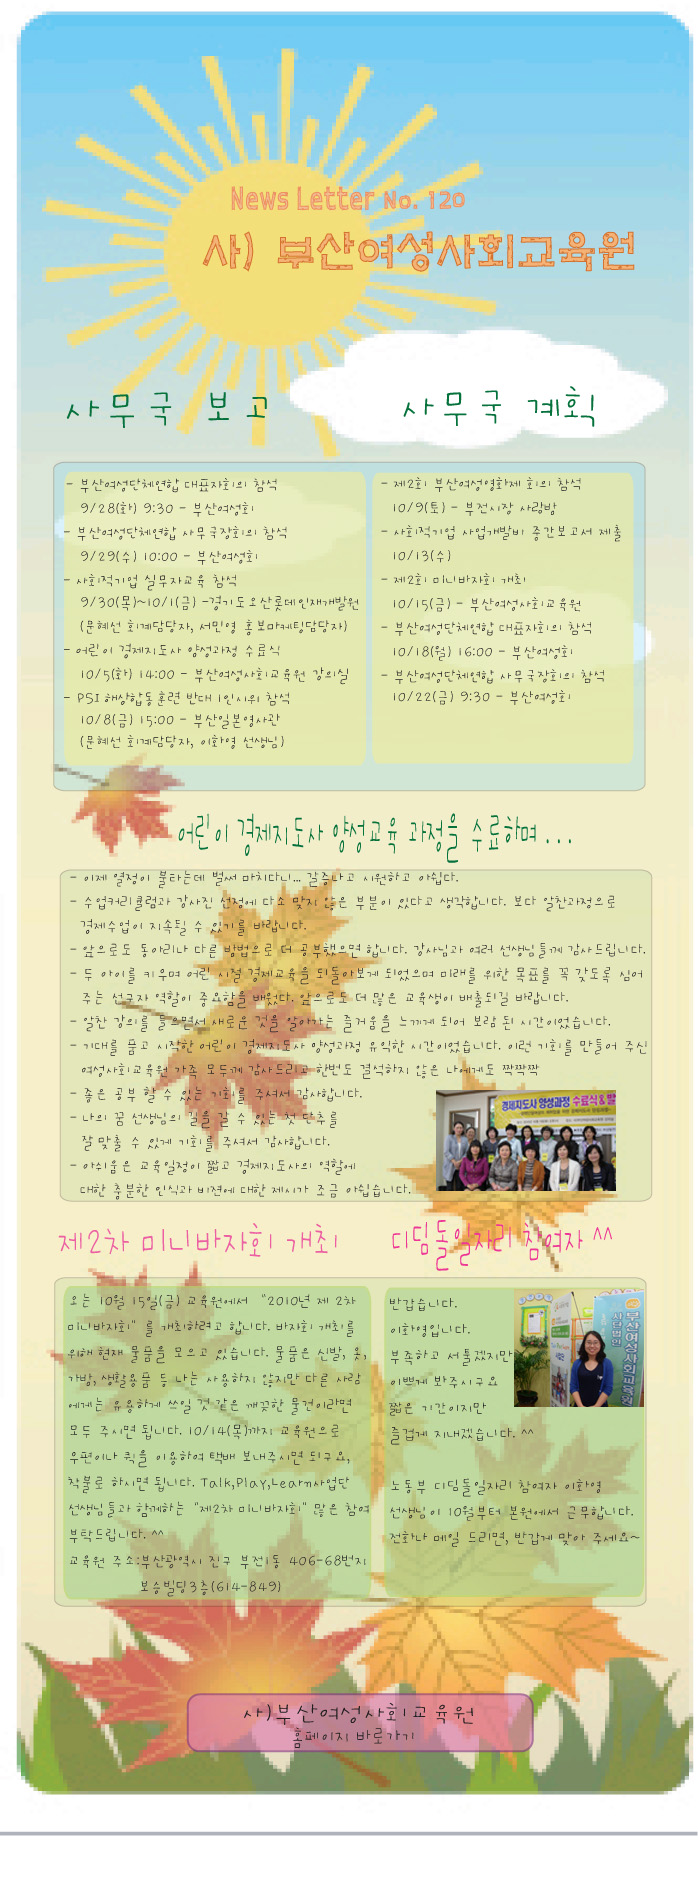 News Letter No. 120
사) 부산여성사회교육원
사무국 보고
- 부산여성단체연합 대표자회의 참석
9/28(화) 9:30 - 부산여성회
- 부산여성단체연합 사무국장회의 참석
9/29(수) 10:00 - 부산여성회
- 사회적기업 실무자교육 참석
9/30(목)~10/1(금) -경기도오산롯데인재개발원
(문혜선 회계담당자, 서민영 홍보마케팅담당자)
- 어린이 경제지도사 양성과정 수료식
10/5(화) 14:00 - 부산여성사회교육원 강의실
- PSI 해상합동훈련 반대 1인시위 참석
10/8(금) 15:00 - 부산일본영사관
(문혜선 회계담당자, 이화영 선생님)
사무국 계획
- 제2회 부산여성영화제 회의 참석
10/9(토) - 부전시장 사랑방
- 사회적기업 사업개발비 중간보고서 제출
10/13(수)
- 제2회 미니바자회 개최
10/15(금) - 부산여성사회교육원
- 부산여성단체연합 대표자회의 참석
10/18(월) 16:00 - 부산여성회
- 부산여성단체연합 사무국장회의 참석
10/22(금) 9:30 - 부산여성회
어린이 경제지도사 양성교육 과정을 수료하며...
- 이제 열정이 불타는데 벌써 마치다니... 갈증나고 시원하고 아쉽다.
- 수업커리큘럼과 강사진 선정에 다소 맞지 않은 부분이 있다고 생각합니다. 보다 알찬과정으로
경제수업이 지속될 수 있기를 바랍니다.
- 앞으로도 동아리나 다른 방법으로 더 공부했으면 합니다. 강사님과 여러 선생님들께 감사드립니다.
- 두 아이를 키우며 어린 시절 경제교육을 되돌아보게 되었으며 미래를 위한 목표를 꼭 갖도록 심어
주는 선구자 역할이 중요함을 배웠다. 앞으로도 더 많은 교육생이 배출되길 바랍니다.
- 알찬 강의를 들으면서 새로운 것을 알아가는 즐거움을 느끼게 되어 보람 된 시간이었습니다.
- 기대를 품고 시작한 어린이 경제지도사 양성과정 유익한 시간이었습니다. 이런 기회를 만들어 주신
여성사회교육원 가족 모두께 감사드리고 한번도 결석하지 않은 나에게도 짝짝짝
- 좋은 공부 할 수 있는 기회를 주셔서 감사합니다.
- 나의 꿈 선생님의 길을 갈 수 있는 첫 단추를
잘 맞출 수 있게 기회를 주셔서 감사합니다.
- 아쉬움은 교육일정이 짧고 경제지도사의 역할에
대한 충분한 인식과 비젼에 대한 제시가 조금 아쉽습니다.
경제지도사 양성과정 수료식 & 발
제2차 미니바자회 개최
오는 10월 15일(금) 교육원에서 "2010년 제 2차
미니바자회"를 개최하려고 합니다. 바자회 개최를
위해 현재 물품을 모으고 있습니다. 물품은 신발, 옷,
가방, 생활용품 등 나는 사용하지 않지만 다른 사람
에게는 유용하게 쓰일 것 같은 깨끗한 물건이라면
모두 주시면 됩니다. 10/14(목)까지 교육원으로
우편이나 퀵을 이용하여 택배 보내주시면 되구요,
착불로 하시면 됩니다. Talk,Play,Learn사업단
선생님들과 함께하는 "제2차 미니바자회" 많은 참여
부탁드립니다. ^^
교육원 주소:부산광역시 진구 부전1동 406-68번지
보승빌딩3층(614-849)
디딤돌일자리 참여자 ^^
반갑습니다.
이화영입니다.
부족하고 서툴겠지만
이쁘게 봐주시구요
짧은 기간이지만
즐겁게 지내겠습니다. ^^
사단법인
부산여성사회교육원
노동부 디딤돌일자리 참여자 이화영
선생님이 10월부터 본원에서 근무합니다.
전화나 메일 드리면, 반갑게 맞아 주세요~
사)부산여성사회교육원
홈페이지 바로가기